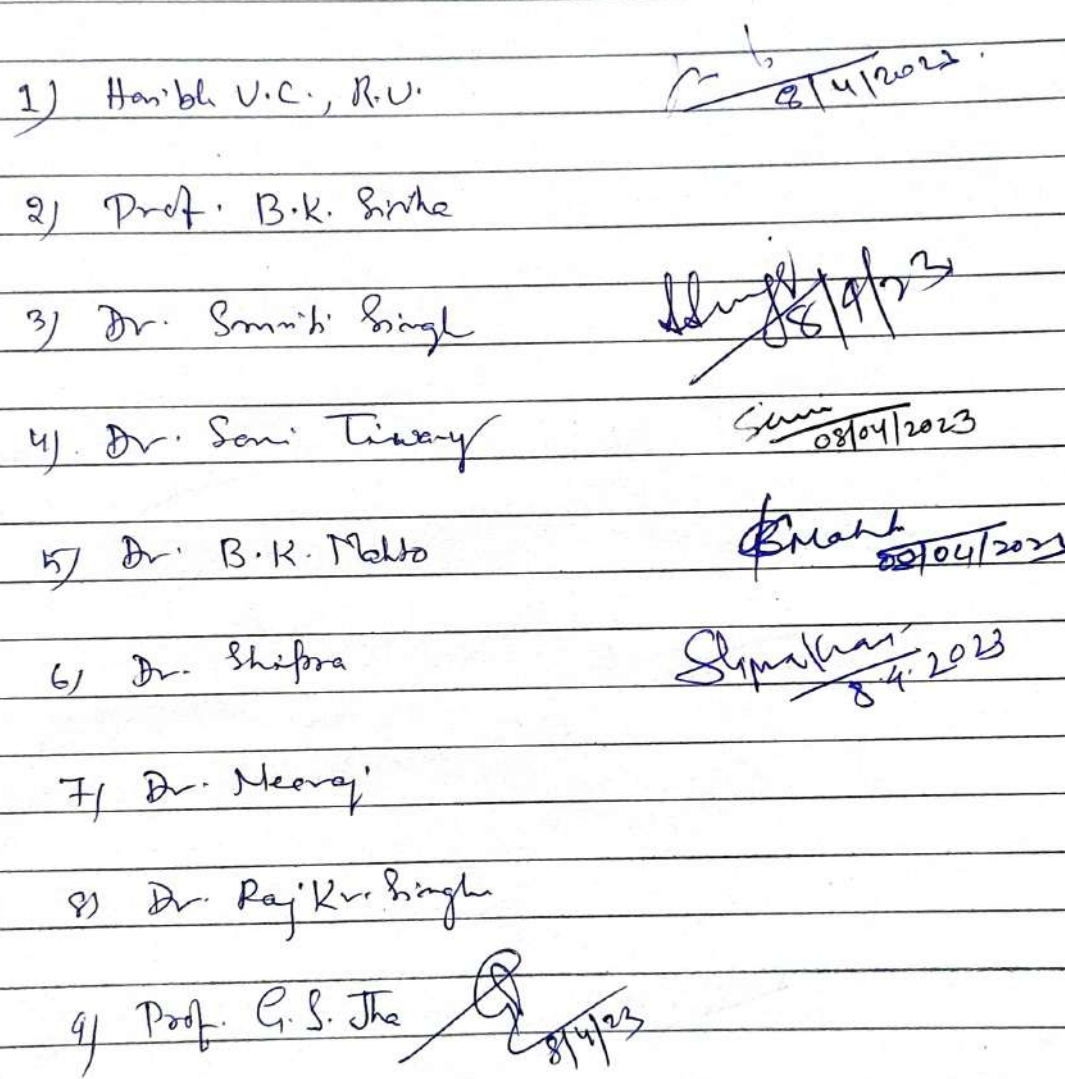 1) Hon'ble V.C., R.U. 8/4/2023.
2) Prof. B.K. Sinha
3) Dr. Smriti Singh 8/4/23
4). Dr. Soni Tiwary Soni 08/04/2023
5) Dr. B.K. Mahto BMahto 08/04/2023
6) Dr. Shipra 8.4.2023
7) Dr. Neeraj
8) Dr. Raj Kr. Singh
9) Prof. G.S. Jha 8/4/23